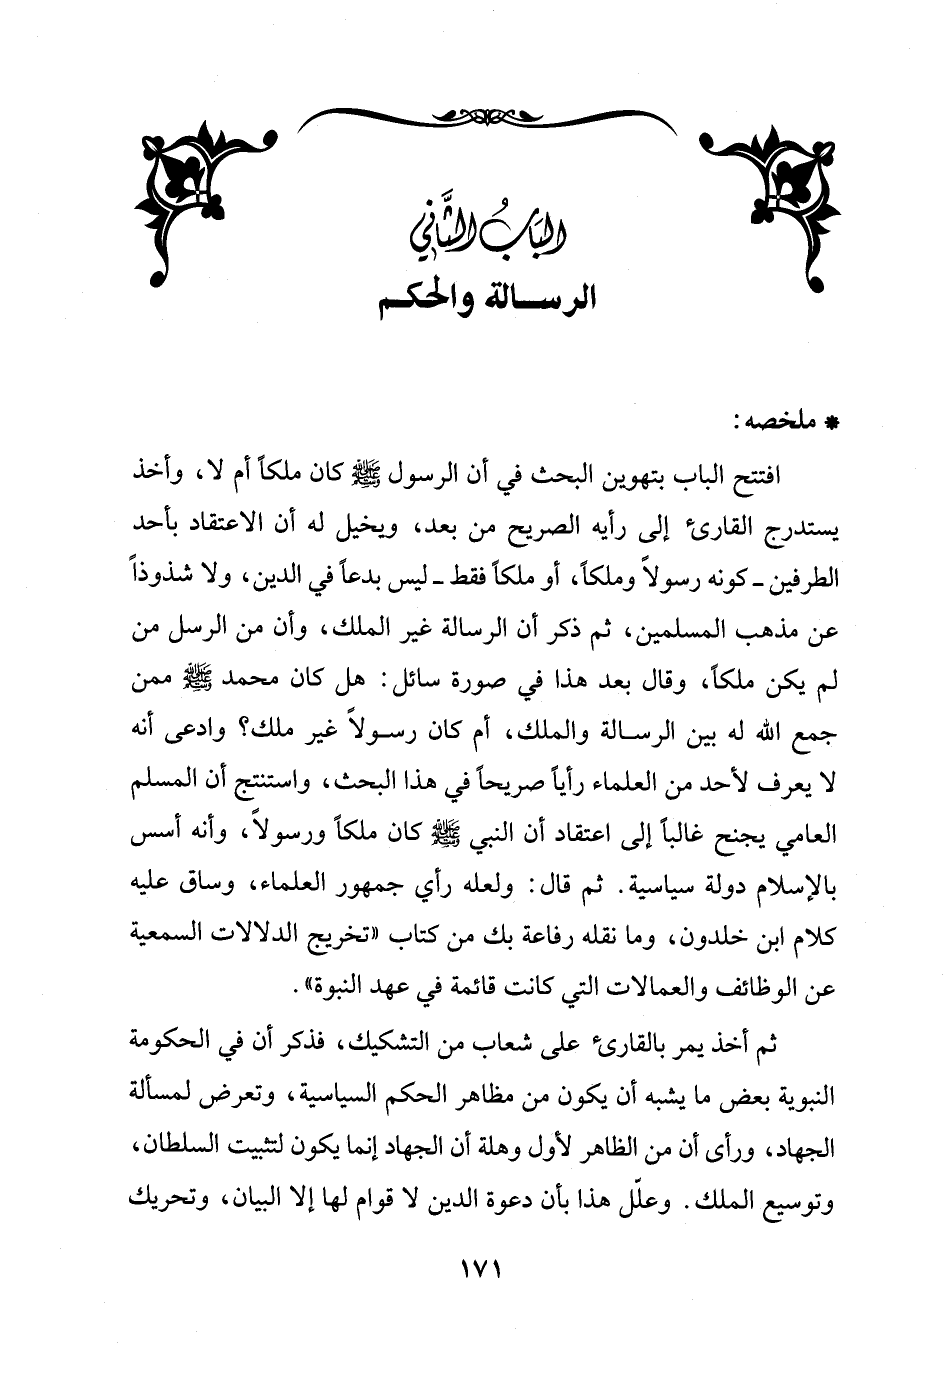 الباب الثاني
الرسالة والحكم
* ملخصه:
افتتح الباب بتهوين البحث في أن الرسول ﷺ كان ملكاً أم لا، وأخذ
يستدرج القارئ إلى رأيه الصريح من بعد، ويخيل له أن الاعتقاد بأحد
الطرفين ـ كونه رسولاً وملكاً، أو ملكاً فقط ـ ليس بدعاً في الدين، ولا شذوذاً
عن مذهب المسلمين، ثم ذكر أن الرسالة غير الملك، وأن من الرسل من
لم يكن ملكاً، وقال بعد هذا في صورة سائل: هل كان محمد ﷺ ممن
جمع الله له بين الرسالة والملك، أم كان رسولاً غير ملك؟ وادعى أنه
لا يعرف لأحد من العلماء رأياً صريحاً في هذا البحث، واستنتج أن المسلم
العامي يجنح غالباً إلى اعتقاد أن النبي ﷺ كان ملكاً ورسولاً، وأنه أسس
بالإسلام دولة سياسية. ثم قال: ولعله رأي جمهور العلماء، وساق عليه
كلام ابن خلدون، وما نقله رفاعة بك من كتاب «تخريج الدلالات السمعية
عن الوظائف والعمالات التي كانت قائمة في عهد النبوة».
ثم أخذ يمر بالقارئ على شعاب من التشكيك، فذكر أن في الحكومة
النبوية بعض ما يشبه أن يكون من مظاهر الحكم السياسية، وتعرض لمسألة
الجهاد، ورأى أن من الظاهر لأول وهلة أن الجهاد إنما يكون لتثبيت السلطان،
وتوسيع الملك. وعلّل هذا بأن دعوة الدين لا قوام لها إلا البيان، وتحريك
١٧١